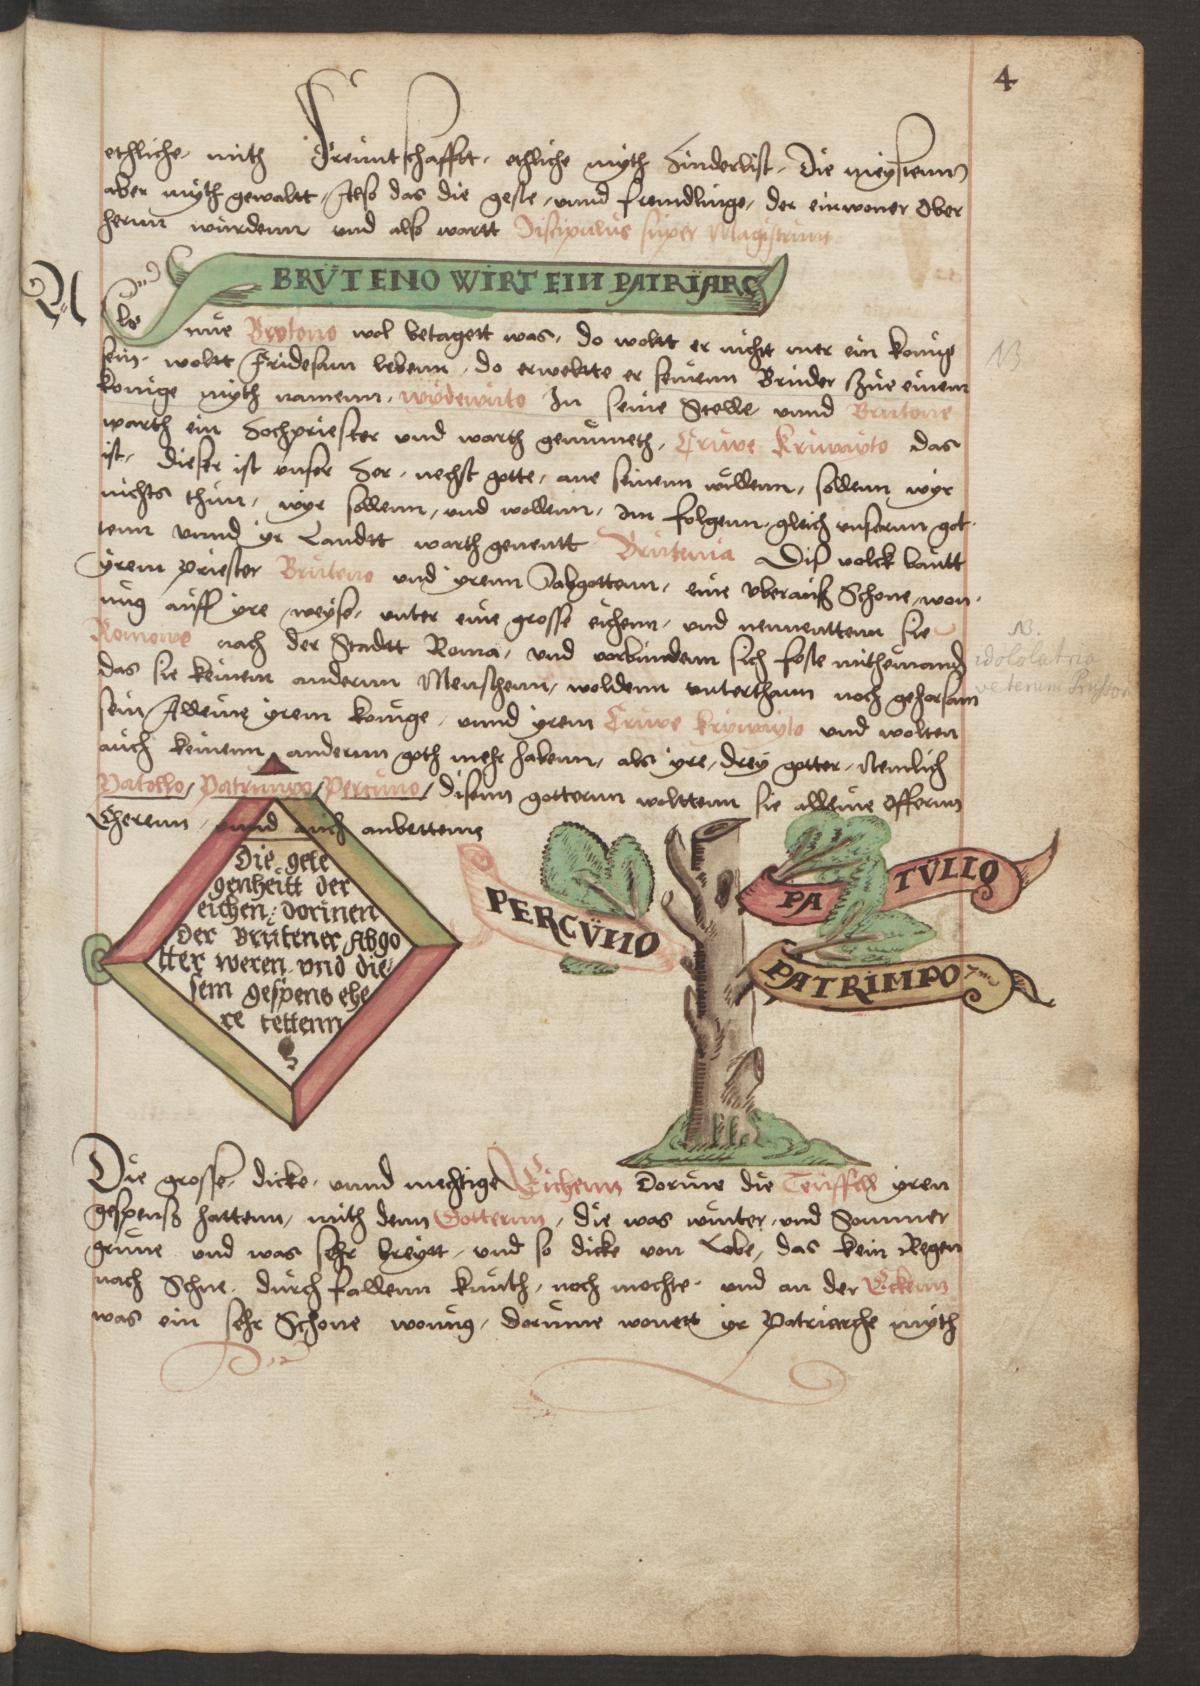 4
ethliche mith Freuntschafftt, ethliche myth Hinderlist, Die meystenn
aber myth gewaltt, Also das die geste, unnd fremdlinge, der einwoner Ober
herrnn wurdenn und also wartt Discipulus super Magistrum
BRŬTENO WIRT EIN PATRIARC
Als nue Brutono wol betagett was, do woltt er nicht mer ein konig
sein, woltt Fridesam lebenn, do erweltte er seinenn Bruder Zue einem
konige myth namenn, wydewuto In seine Stelle, unnd Brutone
warth ein Hochpriester und warth genummeth, Cruwe Kruwayto das
ist, Dieser ist unser Her, nechst gotte, ane seinenn willenn, sollenn wyr
nichts thun, wyr sollenn, und wollenn, Im folgenn, gleich unsernn got,
tenn unnd yr Landtt warth genentt Brutenia Dis volck bautt
yrem priester Bruteno und yrenn Aabgottenn, eine uberauß Schone, won,
ung auff yre weyse, unter eine grosse eichenn, und nennettenn sie
Romowe nach der Stadtt Roma, und vorbundenn sich feste mitheinandr
das sie keinem andernn Menschenn, woldenn unterthann noch gehorsam
sein, Alleine yrem konige, unnd yrem Cruwe kruwayto und wolten
auch keinenn andernn goth mehr habenn, als yre, drey gotter, Nemlich
Patollo, Patrimpo, Percuno, disenn gotternn wolttenn sie alleine Offernn
Eherenn, unnd auch anbettenn
Die gele
genheitt der
eichen, dorinen
der Brŭtener Abgo
tter weren und die
sem gespens ehe
re tettenn
PERCŬNO
PA TŬLLO
PATRIMPO
Die grosse, dicke, unnd mechtige Eichenn Dorine die Teuffell yren
gespenss hattenn, mith denn Gotternn, die was winter, und Sommer
grune und was sehr breytt, und so dicke von Lobe, das kein Regen
nach Schne, durch fallenn kunth, noch mochte, und an der Eckenn
was ein sehr Schone wonung, dorinne wonett yr Patriarche myth
NB
N.
idololatria
veterum Prussor